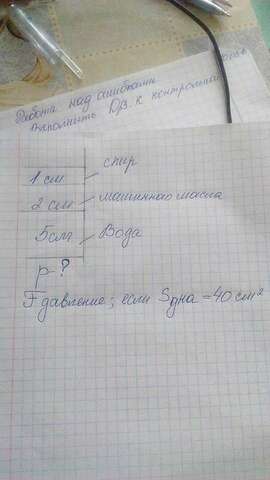 Работа над ошибками
выполнить ДЗ. к контрольной
1 см спир
2 см машинного масла
5 см Вода
p-?
F давление; если Sдна = 40 см²